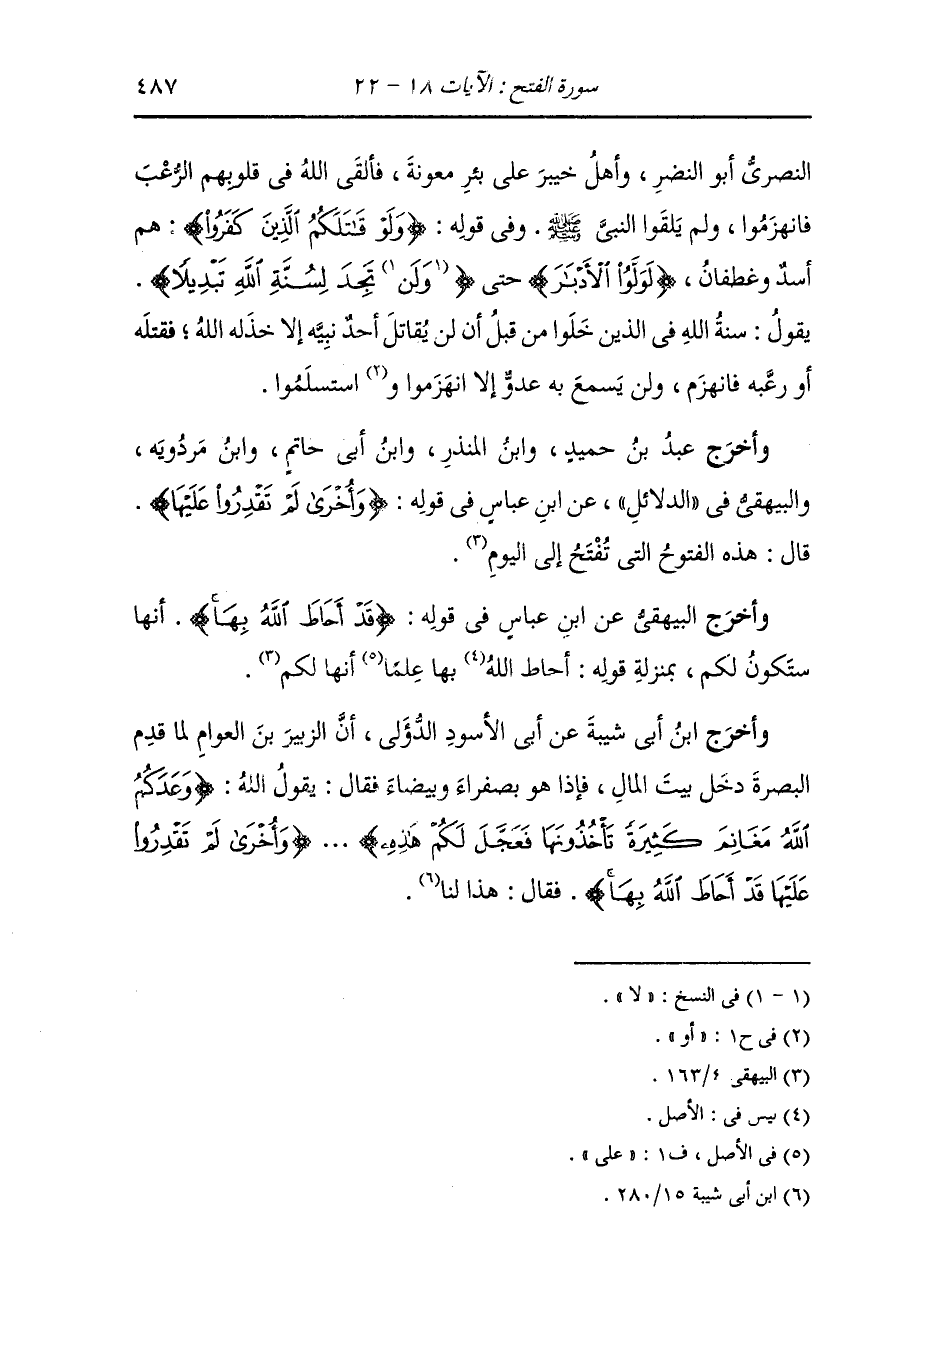 سورة الفتح : الآيات ١٨ - ٢٢ ٤٨٧
النصرىُّ أبو النضرِ ، وأهلُ خيبرَ على بئرِ معونةَ ، فألقَى اللهُ فى قلوبِهم الرُّعْبَ
فانهزَمُوا ، ولم يَلقَوا النبىَّ ﷺ . وفى قولِه : ﴿وَلَوْ قَٰتَلَكُمُ ٱلَّذِينَ كَفَرُواْ﴾ : هم
أسدٌ وغطفانُ ، ﴿لَوَلَّوُاْ ٱلْأَدْبَٰرَ﴾ حتى ﴿(١وَلَن١) تَجِدَ لِسُنَّةِ ٱللَّهِ تَبْدِيلًا﴾ .
يقولُ : سنةُ اللهِ فى الذين خَلَوا من قبلُ أن لن يُقاتلَ أحدٌ نبيَّه إلا خذَله اللهُ ؛ فقتلَه
أو رعَّبه فانهزَم ، ولن يَسمعَ به عدوٌّ إلا انهَزَموا و(٢) استسلَمُوا .
وأخرَج عبدُ بنُ حميدٍ ، وابنُ المنذرِ ، وابنُ أبى حاتمٍ ، وابنُ مَردُويَه ،
والبيهقىُّ فى «الدلائلِ» ، عن ابنِ عباسٍ فى قولِه : ﴿وَأُخْرَىٰ لَمْ تَقْدِرُواْ عَلَيْهَا﴾ .
قال : هذه الفتوحُ التى تُفْتَحُ إلى اليومِ(٣) .
وأخرَج البيهقىُّ عن ابنِ عباسٍ فى قولِه : ﴿قَدْ أَحَاطَ ٱللَّهُ بِهَا﴾ . أنها
ستَكونُ لكم ، بمنزلةِ قولِه : أحاط اللهُ(٤) بها عِلمًا(٥) أنها لكم(٣) .
وأخرَج ابنُ أبى شيبةَ عن أبى الأسودِ الدُّؤَلى ، أنَّ الزبيرَ بنَ العوامِ لما قدِم
البصرةَ دخَل بيتَ المالِ ، فإذا هو بصفراءَ وبيضاءَ فقال : يقولُ اللهُ : ﴿وَعَدَكُمُ
ٱللَّهُ مَغَانِمَ كَثِيرَةً تَأْخُذُونَهَا فَعَجَّلَ لَكُمْ هَٰذِهِۦ﴾ ... ﴿وَأُخْرَىٰ لَمْ تَقْدِرُواْ
عَلَيْهَا قَدْ أَحَاطَ ٱللَّهُ بِهَا﴾ . فقال : هذا لنا(٦) .
(١ - ١) فى النسخ : «لا» .
(٢) فى ح١ : «أو» .
(٣) البيهقى ١٦٣/٤ .
(٤) ليس فى : الأصل .
(٥) فى الأصل ، ف١ : «على» .
(٦) ابن أبى شيبة ٢٨٠/١٥ .